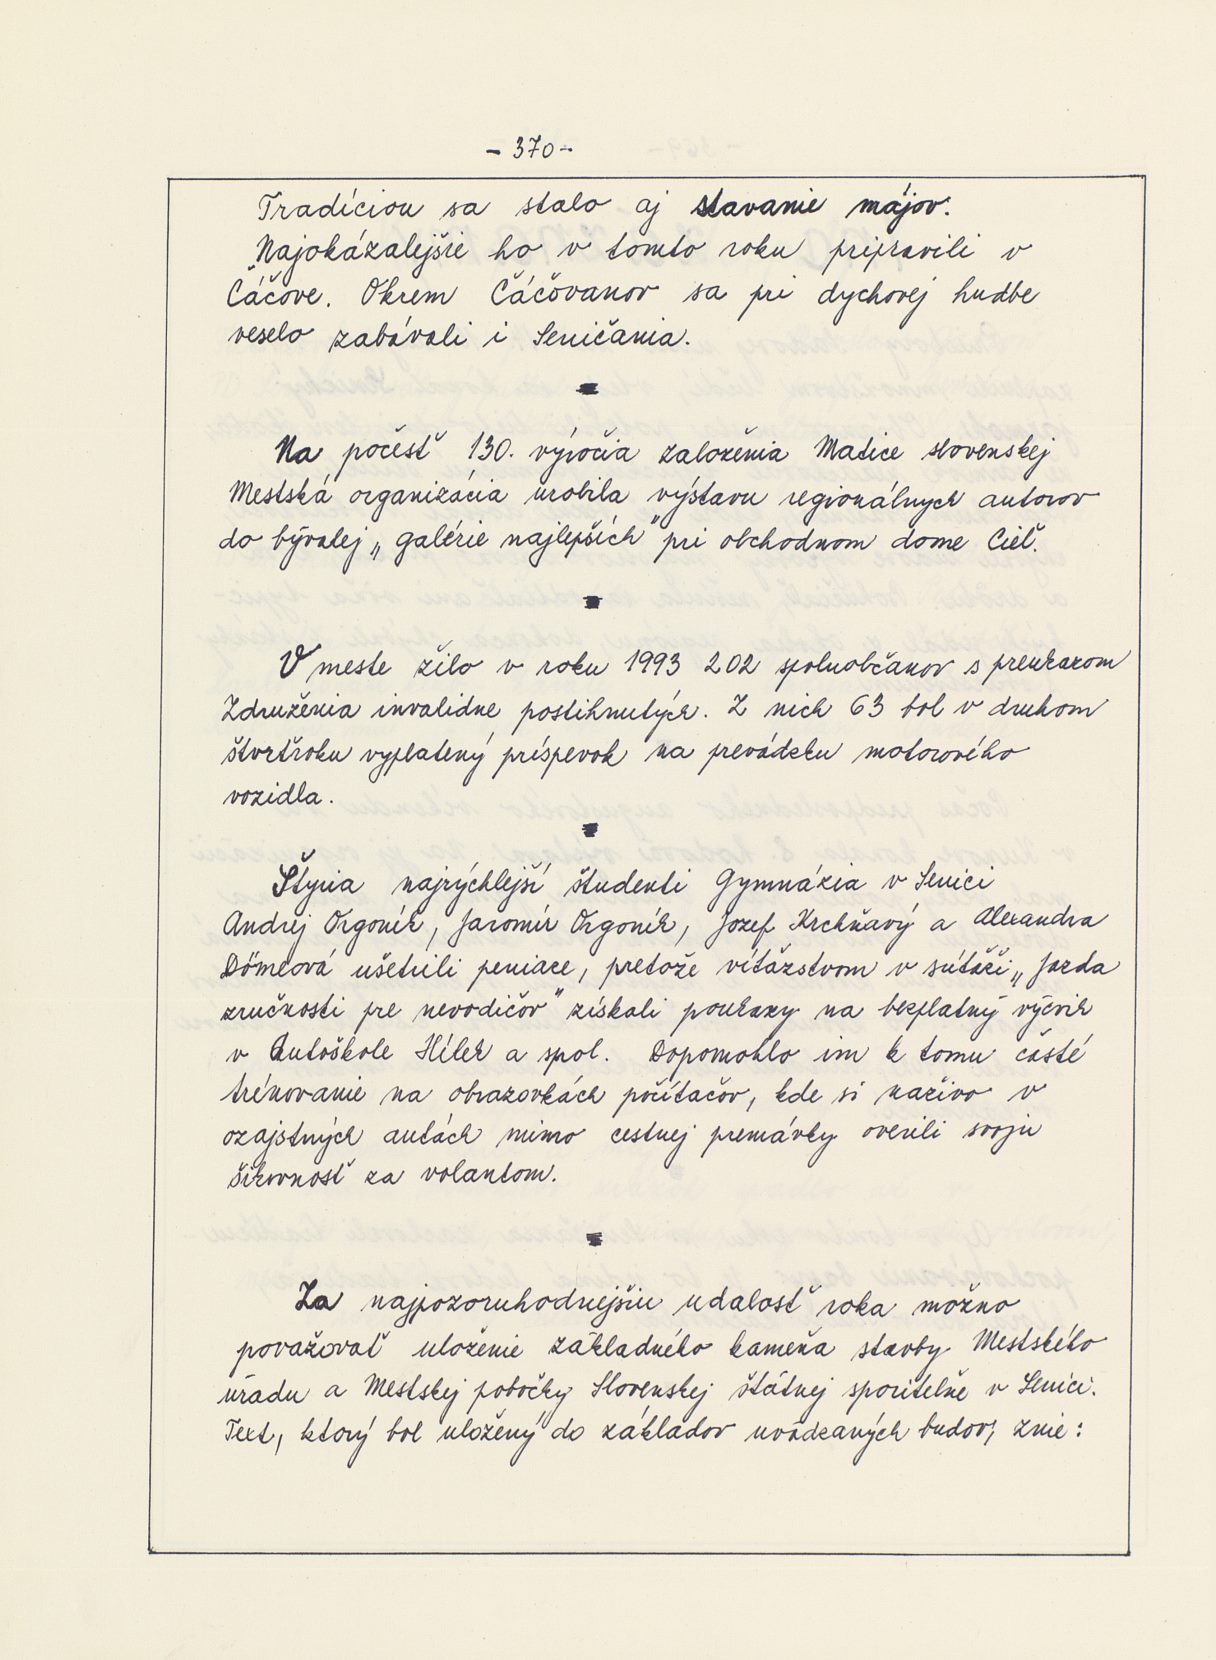 - 370 -
Tradíciou sa stalo aj stavanie májov.
Najokázalejšie ho v tomto roku pripravili v
Čáčove. Okrem Čáčovanov sa pri dychovej hudbe
veselo zabávali i Seničania.
Na počesť 130. výročia založenia Matice slovenskej
Mestská organizácia urobila výstavu regionálnych autorov
do bývalej „galérie najlepších" pri obchodnom dome Cieľ.
V meste žilo v roku 1993 202 spoluobčanov s preukazom
Združenia invalidne postihnutých. Z nich 63 bol v druhom
štvrťroku vyplatený príspevok na prevádzku motorového
vozidla.
Štyria najrýchlejší študenti Gymnázia v Senici
Andrej Orgoník, Jaromír Orgoník, Jozef Krchňavý a Alexandra
Dömeová ušetrili peniaze, pretože víťazstvom v súťaži „Jazda
zručnosti pre nevodičov" získali poukazy na bezplatný výcvik
v Autoškole Hílek a spol. Dopomohlo im k tomu časté
trénovanie na obrazovkách počítačov, kde si naživo v
ozajstných autách mimo cestnej premávky overili svoju
šikovnosť za volantom.
Za najpozoruhodnejšiu udalosť roka možno
považovať uloženie základného kameňa stavby Mestského
úradu a Mestskej pobočky Slovenskej štátnej sporiteľne v Senici.
Text, ktorý bol uložený do základov uvádzaných budov, znie: